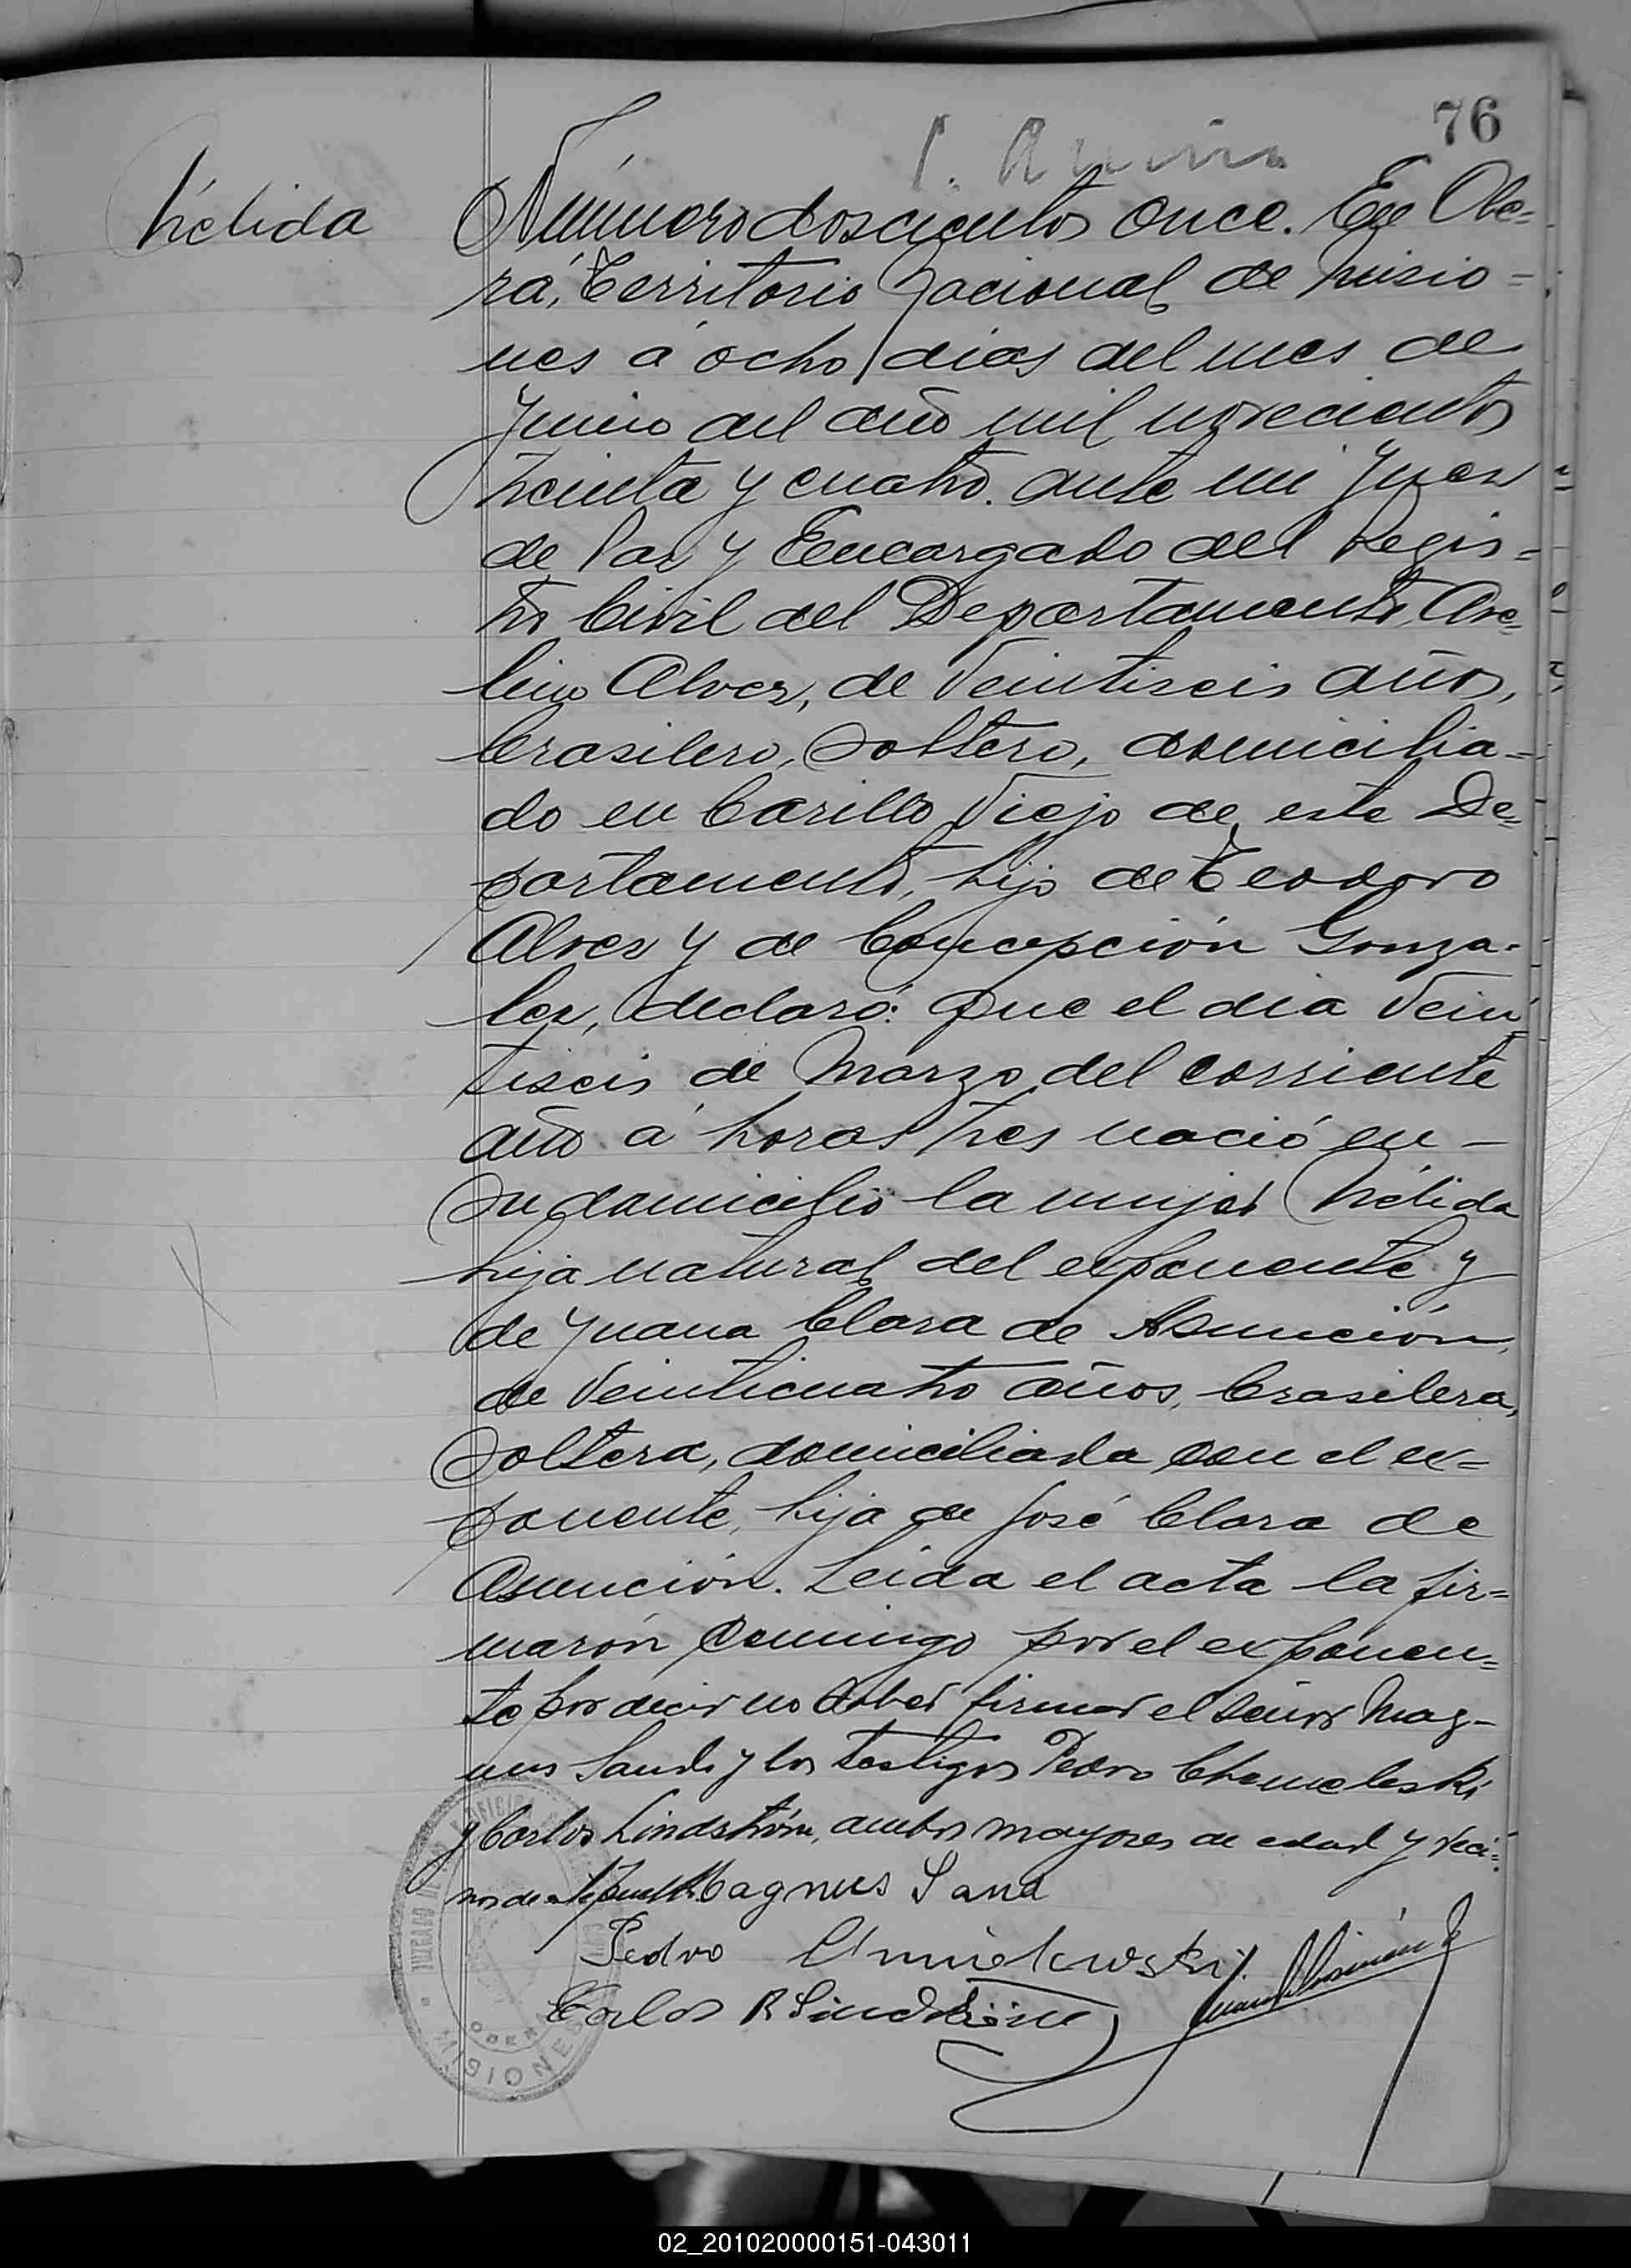 76
Nélida
Número doscientos once. En Obe=
rá, Territorio Nacional de Misio=
nes á ocho dias del mes de
Junio del año mil novecientos
treinta y cuatro. ante mi Juez
de Paz y Encargado del Regis=
tro Civil del Departamento, Ave=
lino Alvez, de veintiseis años,
brasilero, soltero, domicilia=
do en Barillo Viejo de este De=
partamento, hijo de Teodoro
Alvez y de Concepción Gonza-
lez, declaró: que el dia vein
tiseis de Marzo del corriente
año á horas tres nació en -
su domicilio la mujer Nélida
hija natural del exponente y
de Juana Clara de Asunción,
de veinticuatro años, brasilera,
soltera, domiciliada con el ex=
ponente, hija de José Clara de
Asunción. Leida el acta la fir=
marón conmigo por el exponen=
te por decir no saber firmar el señor Mag-
nus Sand y los testigos Pedro Chemeleski
y Carlos Lindström, ambos mayores de edad y veci=
nos de este Magnus Sand
Pedro Chmielewski
Carlos R Lindström
JUZGADO DE PAZ OFICINA
OBERA
MISIONES
02_201020000151-043011